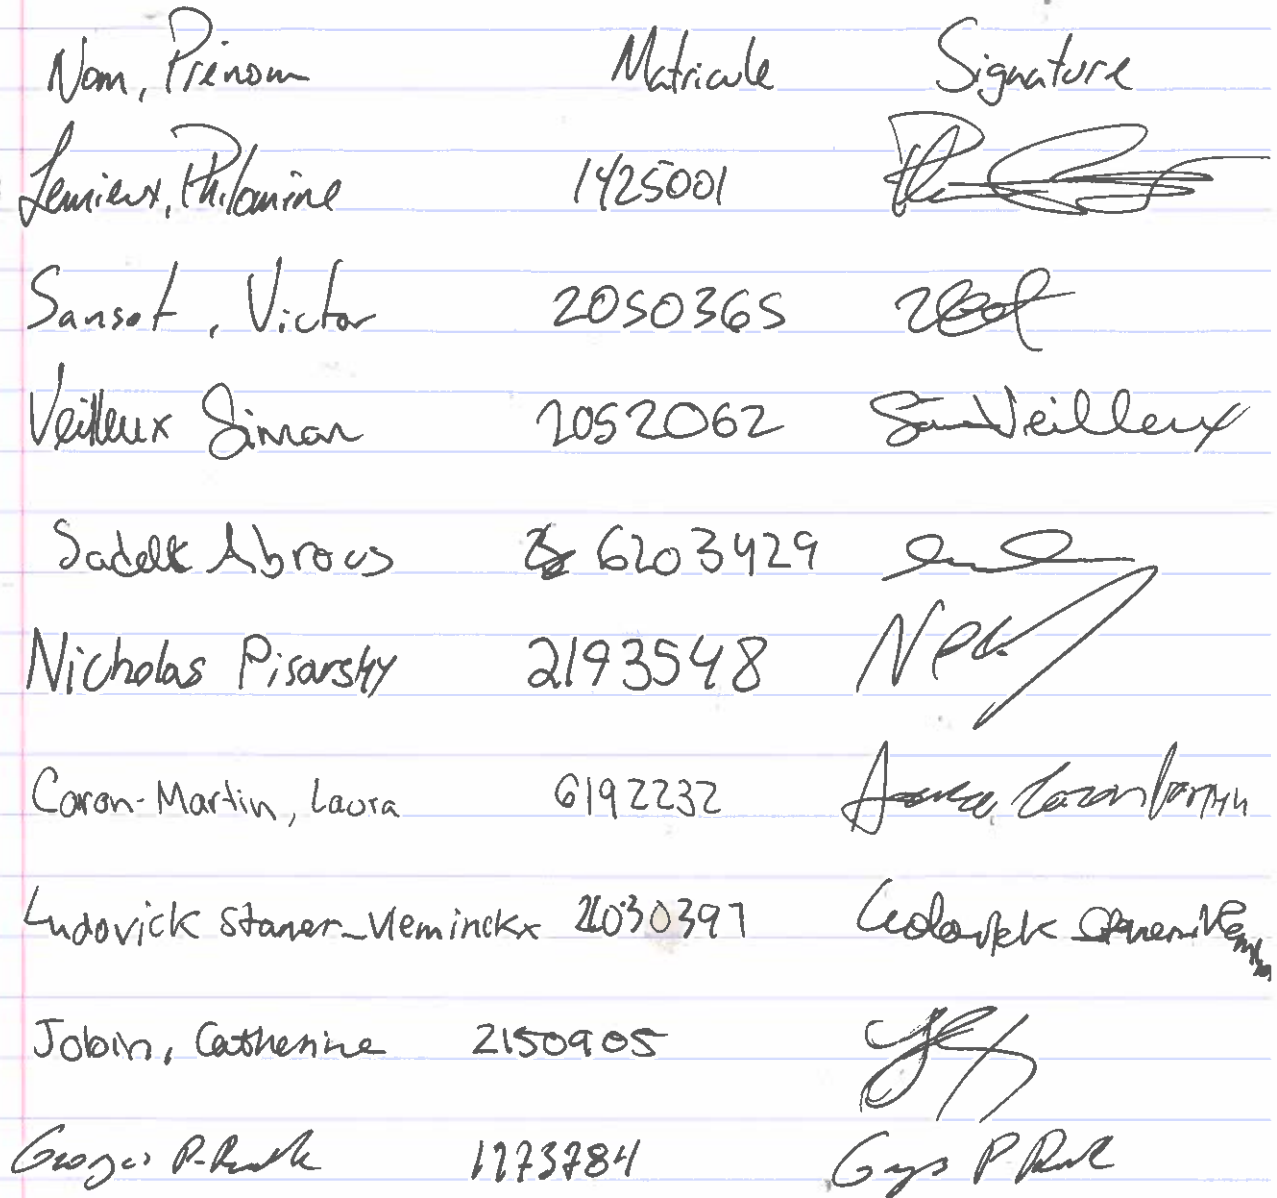 Nom, Prénom Matricule Signature
Lemieux, Philomine 1425001
Sansot, Victor 2050365
Veilleux Simon 2052062 Simon Veilleux
Sadek Abrous 6203429
Nicholas Pisarsky 2193548
Caron-Martin, Laura 6192232
Ludovick Staner-Vleminckx 2030397 Ludovick
Jobin, Catherine 2150905
Georges P. 1273784 P